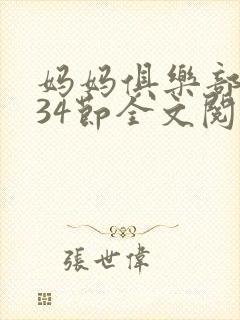 妈妈俱樂部
34節全文閱
張世偉